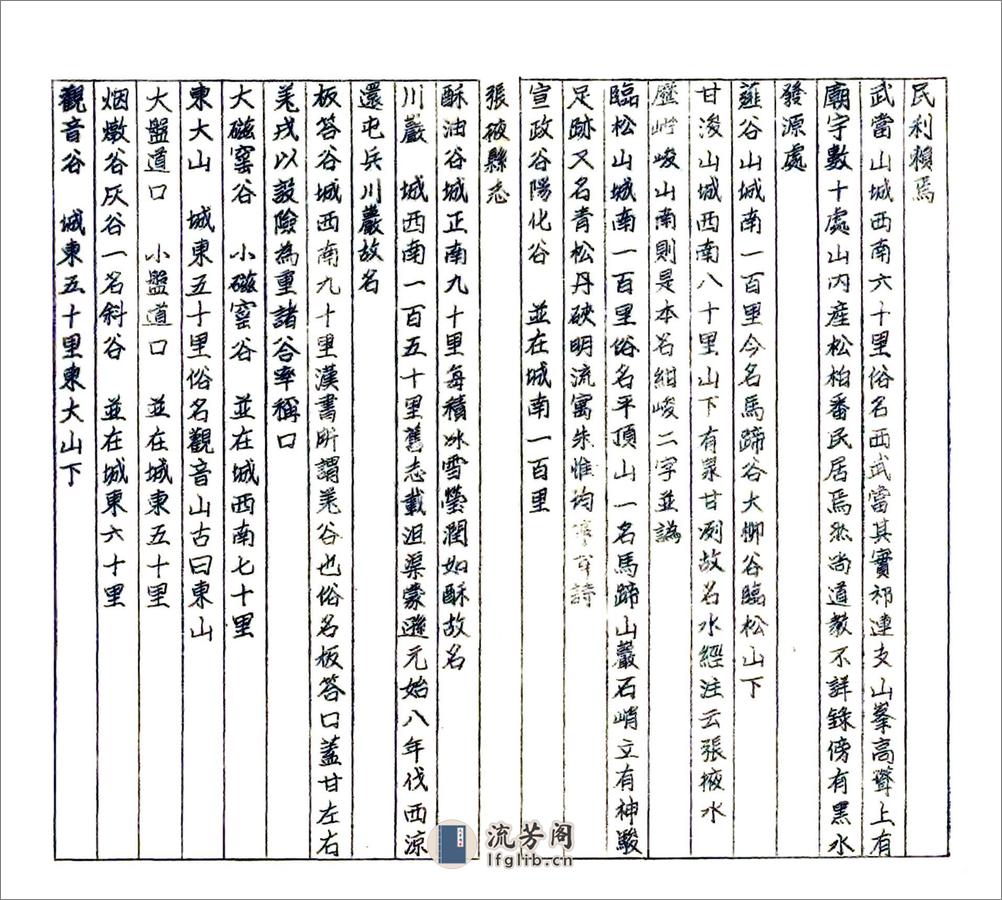 民利賴焉
武當山城西南六十里俗名西武當其實祁連支山峯高聳上有
廟宇數十處山內產松柏番民居焉然尚道教不詳錄傍有黑水
發源處
薤谷山城南一百里今名馬蹄谷大柳谷臨松山下
甘浚山城西南八十里山下有泉甘冽故名水經注云張掖水
歷峻山南則是本名紺峻二字並譌
臨松山城南一百里俗名平頂山一名馬蹄山巖石峭立有神驗
足跡又名青松丹硤明流寓朱惟均詩
宣政谷陽化谷 並在城南一百里
張掖縣志
酥油谷城正南九十里每積冰雪瑩潤如酥故名
川巖 城西南一百五十里舊志載沮渠蒙遜元始八年伐西涼
還屯兵川巖故名
板答谷城西南九十里漢書所謂羌谷也俗名板答口蓋甘左右
羌戎以設險為重諸谷率稱口
大磁窰谷 小磁窰谷 並在城西南七十里
東大山 城東五十里俗名觀音山古曰東山
大盤道口 小盤道口 並在城東五十里
烟燉谷灰谷一名斜谷 並在城東六十里
觀音谷 城東五十里東大山下
流芳阁
lfglib.cn